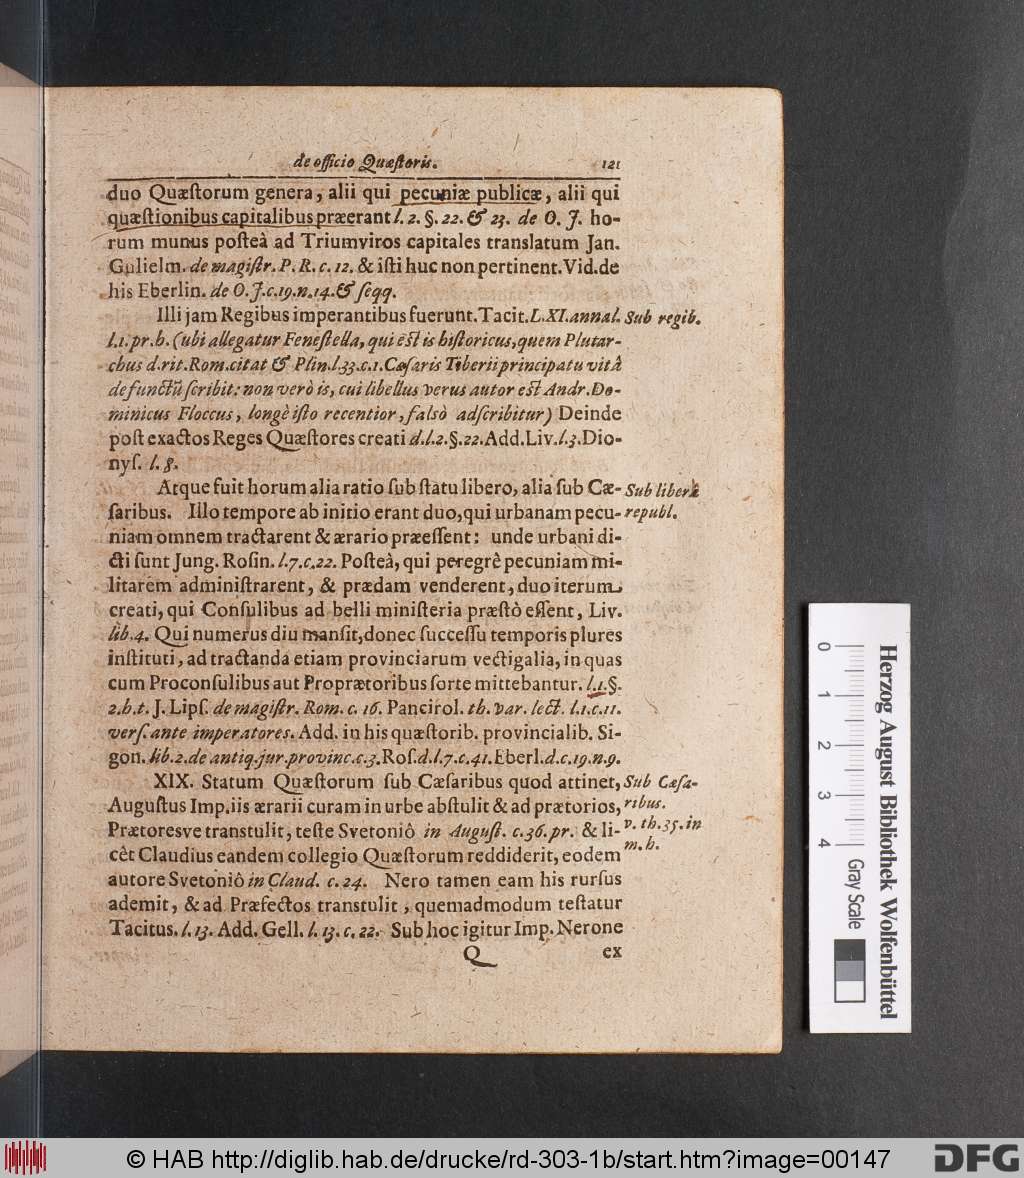 de officio Quæſtoris. 121
duo Quæſtorum genera, alii qui pecuniæ publicæ, alii qui
quæſtionibus capitalibus præerant l. 2. §. 22. & 23. de O. J. ho-
rum munus poſteà ad Triumviros capitales translatum Jan.
Gulielm. de magiſtr. P. R. c. 12. & iſti huc non pertinent. Vid. de
his Eberlin. de O. J. c. 19. n. 14. & ſeqq.
Illi jam Regibus imperantibus fuerunt. Tacit. L. XI. annal. Sub regib.
l. 1. pr. h. (ubi allegatur Feneſtella, qui eſt is hiſtoricus, quem Plutar-
chus d. rit. Rom. citat & Plin. l. 33. c. 1. Cæſaris Tiberii principatu vitâ
defunctũ ſcribit: non verò is, cui libellus verus autor eſt Andr. Do-
minicus Floccus, longè iſto recentior, falsò adſcribitur) Deinde
poſt exactos Reges Quæſtores creati d. l. 2. §. 22. Add. Liv. l. 3. Dio-
nyſ. l. 8.
Atque fuit horum alia ratio ſub ſtatu libero, alia ſub Cæ- Sub liberâ
ſaribus. Illo tempore ab initio erant duo, qui urbanam pecu- republ.
niam omnem tractarent & ærario præeſſent: unde urbani di-
cti ſunt Jung. Roſin. l. 7. c. 22. Poſteà, qui peregrè pecuniam mi-
litarem adminiſtrarent, & prædam venderent, duo iterum
creati, qui Conſulibus ad belli miniſteria præſtò eſſent, Liv.
lib. 4. Qui numerus diu manſit, donec ſucceſſu temporis plures
inſtituti, ad tractanda etiam provinciarum vectigalia, in quas
cum Proconſulibus aut Proprætoribus ſorte mittebantur. l. 1. §.
2. h. t. J. Lipſ. de magiſtr. Rom. c. 16. Pancirol. th. var. lect. l. 1. c. 11.
verſ. ante imperatores. Add. in his quæſtorib. provincialib. Si-
gon. lib. 2. de antiq. jur. provinc. c. 3. Roſ. d. l. 7. c. 41. Eberl. d. c. 19. n. 9.
XIX. Statum Quæſtorum ſub Cæſaribus quod attinet, Sub Cæſa-
Auguſtus Imp. iis ærarii curam in urbe abſtulit & ad prætorios, ribus.
Prætoresve transtulit, teſte Svetoniô in Auguſt. c. 36. pr. & li- v. th. 35. in
cèt Claudius eandem collegio Quæſtorum reddiderit, eodem m. h.
autore Svetoniô in Claud. c. 24. Nero tamen eam his rurſus
ademit, & ad Præfectos transtulit, quemadmodum teſtatur
Tacitus. l. 13. Add. Gell. l. 13. c. 22. Sub hoc igitur Imp. Nerone
Q ex
0 1 2 3 4
Herzog August Bibliothek Wolfenbüttel
Gray Scale
© HAB http://diglib.hab.de/drucke/rd-303-1b/start.htm?image=00147
DFG